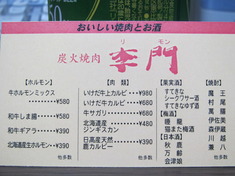 おいしい焼肉とお酒
リ モン
炭火焼肉 李門
【ホルモン】
牛ホルモンミックス
¥580
和牛しま腸……¥580
和牛ギアラ……¥390
北海道産生ホルモン
¥390
他多数
【肉類】
いけだ牛上カルビ…¥980
いけだ牛カルビ…¥680
牛サガリ…………¥680
北海道産………¥480
ジンギスカン
日高産天然…¥280
鹿カルビ
他多数
【果実酒】
すてきな
シークワサー酒
すてきなゆず酒
【梅酒】
猫また梅酒
【日本酒】
秋鹿
万齢
会津娘
他多数
【焼酎】
魔王
村尾
萬膳
伊佐美
森伊蔵
川越
兼八
他多数